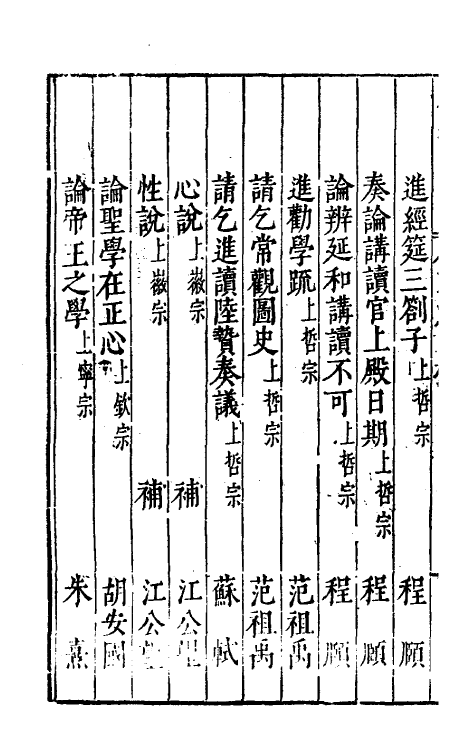 進經筵三劄子上哲宗 程頤
奏論講讀官上殿日期上哲宗 程頤
論辨延和講讀不可上哲宗 程頤
進勸學䟽上哲宗 范祖禹
請乞常觀圖史上哲宗 范祖禹
請乞進讀陸贄奏議上哲宗 蘇軾
心說上徽宗 補 江公望
性說上徽宗 補 江公望
論聖學在正心上欽宗 胡安國
論帝王之學上寧宗 朱熹